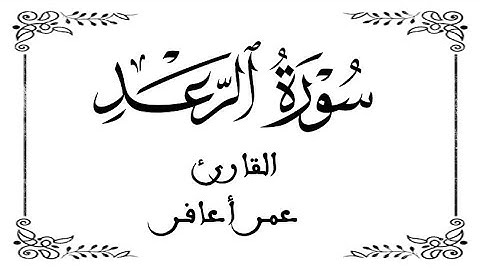 سُورَةُ ٱلرَّعْدِ
القارئ
عمر أعافر